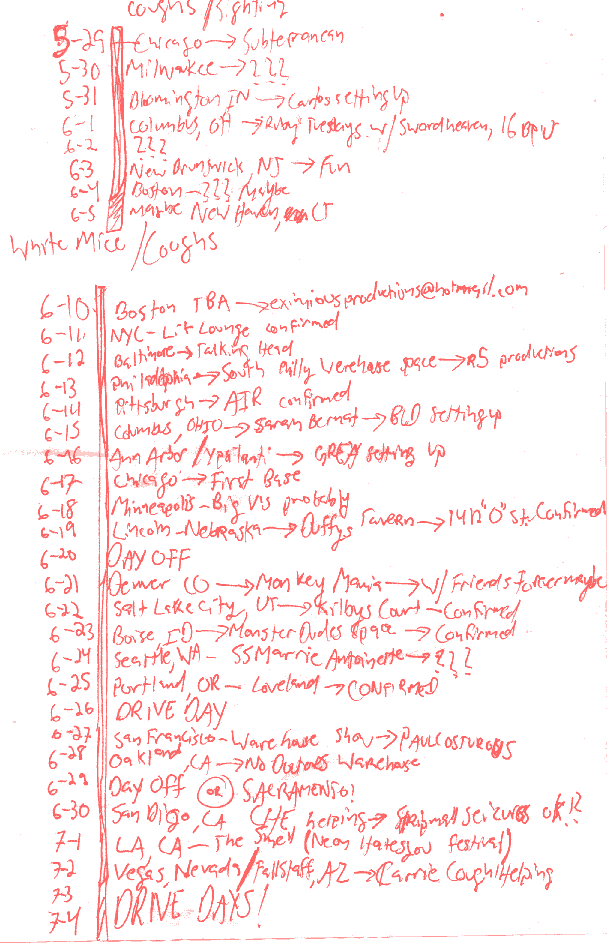 Coughs/Fighting
5-29 Chicago → Subterranean
5-30 Milwaukee → ???
5-31 Bloomington IN → Carlos setting up
6-1 Columbus, OH → Ruby Tuesdays w/ Swordheaven, 16 BPU
6-2 ???
6-3 New Brunswick, NJ → Fun
6-4 Boston - ??? Maybe
6-5 Maybe New Haven, CT
White Mice/Coughs
6-10 Boston TBA → eximiousproductions@hotmail.com
6-11 NYC - Lit Lounge confirmed
6-12 Baltimore → Talking Head
6-13 Philadelphia → South Philly Warehouse space → R5 productions
6-14 Pittsburgh → AIR confirmed
6-15 Columbus, OHIO → Saran Bernat → BLD setting up
6-16 Ann Arbor/Ypsilanti → GREY setting up
6-17 Chicago → First Base
6-18 Minneapolis - Big Vs probably
6-19 Lincoln - Nebraska → Duffys Tavern → 1412 "O" St. Confirmed
6-20 DAY OFF
6-21 Denver CO → Monkey Mania → w/ Friends Forever maybe
6-22 Salt Lake City, UT → Kilbys Court - Confirmed
6-23 Boise, ID → Monster Dudes space → Confirmed
6-24 Seattle, WA - SS Marrie Antoinette → ???
6-25 Portland, OR - Loveland → CONFIRMED
6-26 DRIVE DAY
6-27 San Francisco - Warehouse show → PAUL COSTUROS
6-28 Oakland, CA → No Doctors Warehouse
6-29 Day Off OR SACRAMENTO!
6-30 San Diego, CA CHE helping → seizures OK??
7-1 LA, CA - The Smell (Neon Hates You Festival)
7-2 Vegas, Nevada/Falstaff, AZ → Carrie Cough Helping
7-3
7-4 DRIVE DAYS!